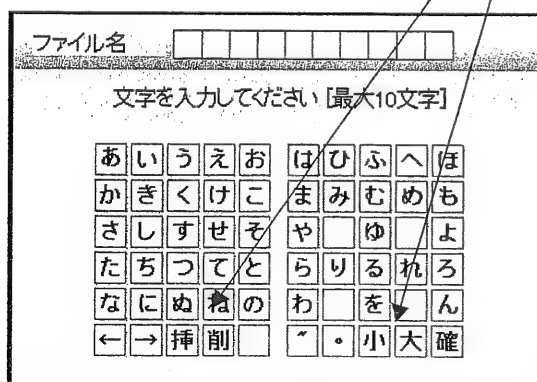 ファイル名
文字を入力してください [最大10文字]
あ い う え お は ひ ふ へ ほ
か き く け こ ま み む め も
さ し す せ そ や ゆ よ
た ち つ て と ら り る れ ろ
な に ぬ ね の わ を ん
← → 挿 削 ゛ ゜ 小 大 確